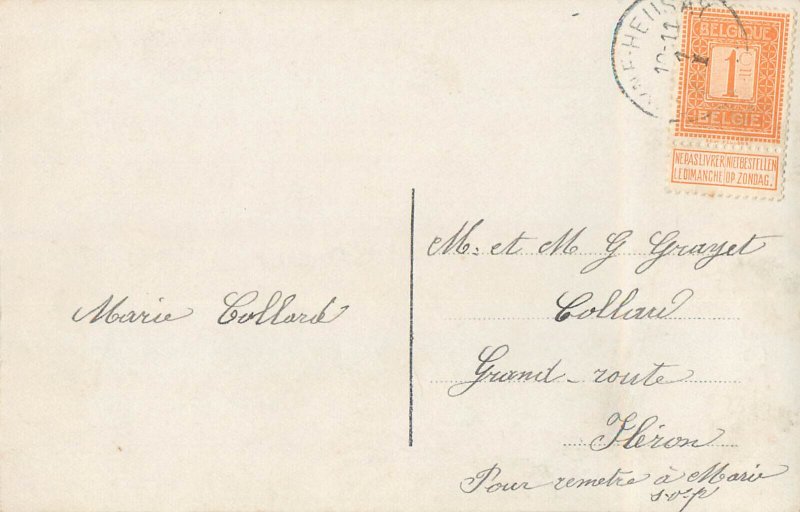 BELGIQUE
1
BELGIE
NE PAS LIVRER NIET BESTELLEN
LE DIMANCHE OP ZONDAG.
10-11
M. et M G Grayet
Collard
Grand-route
Héron
Pour remetre à Marie
s.v.p
Marie Collard